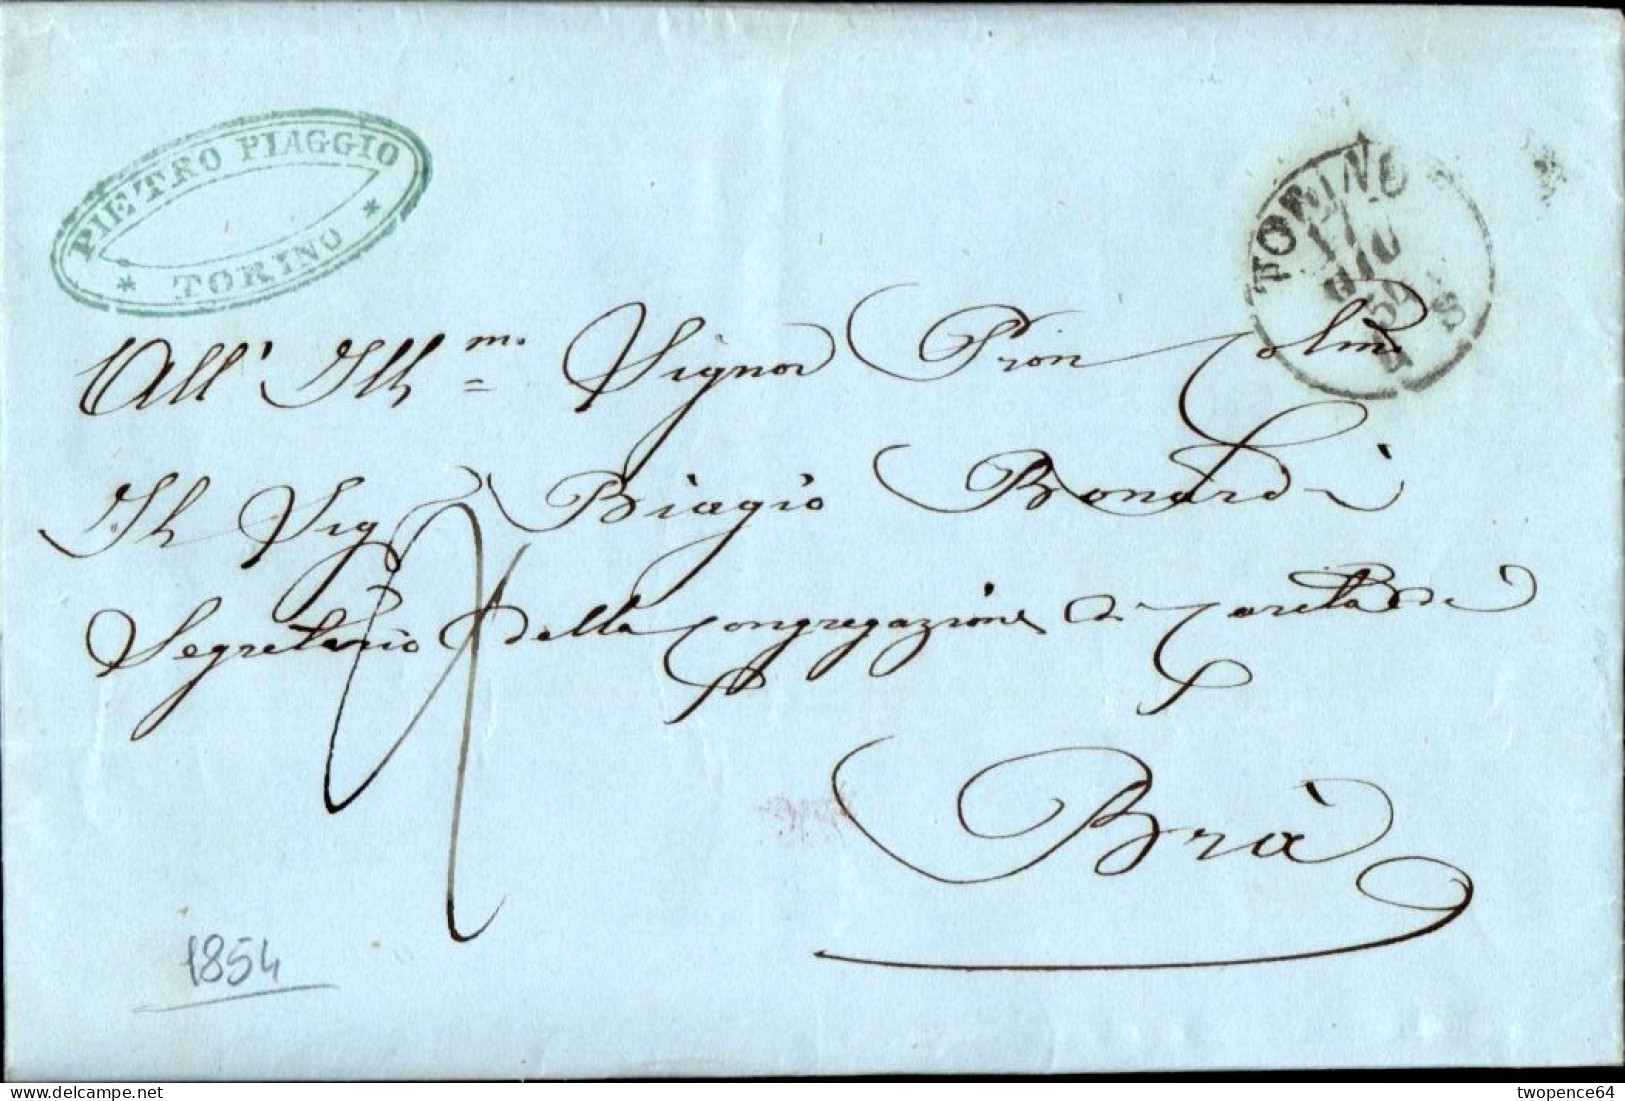 PIETRO PIAGGIO
* TORINO *
TORINO
17
GIU
54
S
All' Ill.mo Signor Pron Colmo
Il Sig Biagio Bonardi
Segretario della Congregazione di Carità di
Brà
1854
delcampe.net
twopence64